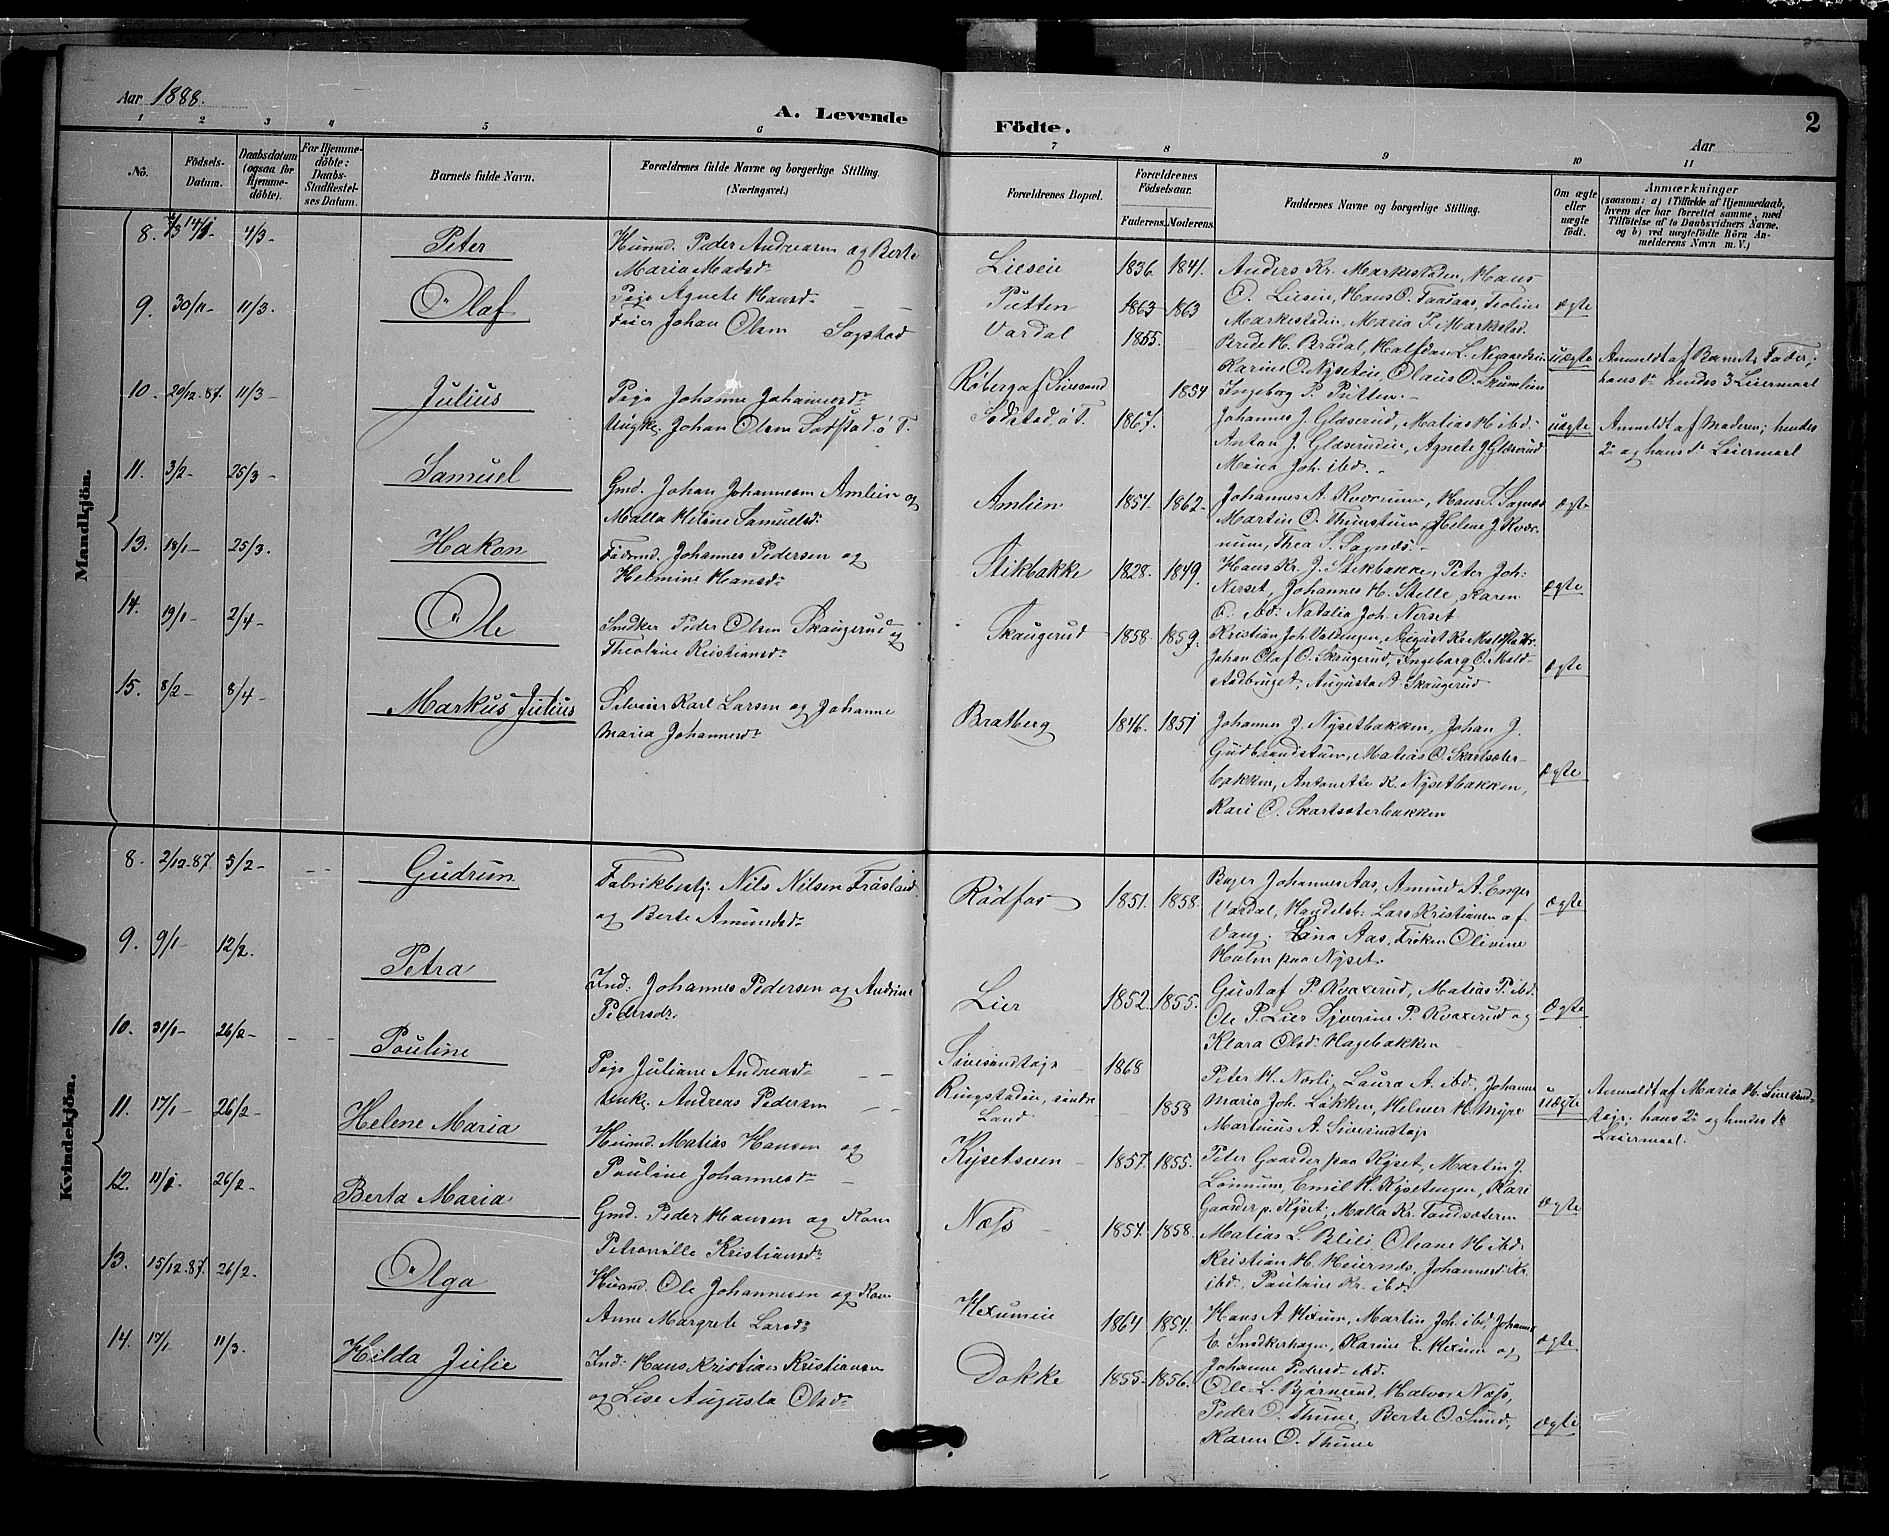 Aar 1888.
A. Levende Födte.
Aar
2
1 2 3 4 5 6 7 8 9 10 11
No.
Födsels-Datum.
Daabsdatum (ogsaa for Hjemme-döbte).
For Hjemme-döbte: Daabs-Stadfæstel-ses Datum.
Barnets fulde Navn.
Forældrenes fulde Navne og borgerlige Stilling. (Næringsvei.)
Forældrenes Bopæl.
Forældrenes Födselsaar.
Faderens. Moderens.
Faddernes Navne og borgerlige Stilling.
Om ægte eller uægte födt.
Anmærkninger
(saasom: a) i Tilfælde af Hjemmedaab, hvem der har forrettet samme, med Tilföielse af to Daabsvidners Navne, og b) ved uægtefödte Börn An-melderens Navn m. V.)
Mandkjön.
8. 4/3 Peter
Huusmd. Peder Andreasen og Berte
Maria Madsdr
Lieseie 1836. 1841.
Anders Kr. Markestaden, Hans
O. Liesein, Hans O. Faasaas, Teoline
Markestadin, Maria P. Markstad
ægte
9. 11/3. Olaf
Pige Agnete Hansdr
Fader Johan Olsen Sogstad
Putten 1863 1863
Vardal 1855.
Brede H. Bradal, Halfdan L. Nygaardsin
Karine O. Nyseteie, Olaus O. Skumlien
Ingeborg P. Putten.
uægte
Anmeldt af Barnets Fader;
hans 1ste hendes 3 Leiermaal
10. 29/12 87. 11/3 Julius
Pige Johanne Johannesdr
Ungkr. Johan Olsen Sodstad ö T.
Røberg af Sivesind 1854
Sodstad ö T. 1867.
Johannes J. Glæserud, Matias H ibd.
Anton J. Glæserudeie, Agnete J Glæserud
Maria Joh. ibd.
uægte
Anmeldt af Moderen; hendes
2n og hans 1ste Leiermaal
11. 3/2 25/3 Samuel
Gmd. Johan Johannesen Amlien og
Malla Heline Samuelsdr
Amlien 1857. 1862
Johannes A. Kværnum, Hans S. Sognes
Martin O. Thunstuen, Helene J. Kvær-
num, Thea S. Sognes.
ægte
13. 18/1 25/3. Hakon
Johannes Pedersen og
Helmine Hansdr
Stikbakke 1828. 1849.
Hans Kr. J. Stikbakke, Peter Joh:
Nerset, Johannes H. Stelle, Karen
O. ibd. Natalia Joh. Nerset
ægte
14. 19/1 2/4 Ole
Snedker Peder Olsen Skaugerud og
Theoline Kristiansdr
Skaugerud 1858. 1859.
Kristian Joh. Valdengen, August Kr.
Johan Olaf O. Skaugerud, Ingeborg O. Mold-
stadbruget, Augusta A. Skaugerud
ægte
15. 8/2 8/4 Markus Julius
Karl Larsen og Johanne
Maria Johannesdr
Bratberg 1846. 1851
Johannes J. Nysetbakken, Johan J.
Gudbrandstuen, Matias O. Skartsæter-
bakken, Antonette K. Nysetbakken,
Kari O. Skartsæterbakken
ægte
Kvindekjön.
8. 2/12 87. 5/2 Gudrun
Fabrikbestj. Nils Nilsen Frøsland
og Berte Amundsdr
Rødfos 1851. 1858.
Johannes Aas, Amund A. Enger
Vardal, Handelsb: Lars Kristiansen af
Vang. Lina Aas, Frøken Olivine
Holm paa Nyset.
ægte
9. 9/1 12/2. Petra
Ind: Johannes Pedersen og Andrine
Pedersdr.
Lier 1852. 1855.
Gustaf P. Kvaxerud, Matias P. ibd.
Ole P. Lier Syverine P. Kvaxerud og
Klara Olsdr Hagebakken
ægte
10. 31/1 26/2 Pouline
Pige Juliane Andreasdr
Unkr. Andreas Pedersen
Sivesindtøje 1868
Ringstadeie, søndre Land 1858
Peter H. Nerli, Laura A. ibd, Johanne
Maria Joh. Løkken, Helmer H. Myre
Martinus A. Sivesindtøje
uægte
Anmeldt af Maria H. Sivesind-
tøje; hans 2n og hendes 1ste
Leiermaal.
11. 17/1 26/2 Helene Maria
Husmd. Matias Hansen og
Pouline Johannesdr
Kysetseien 1857. 1855.
Peter Gaarder paa Kyset, Martin J.
Lønnum, Emil H. Kysetengen, Kari
Gaarder p. Kyset, Malla Kr. Tandsæteren
ægte
12. 11/1. 26/2 Berta Maria
Gmd. Peder Hansen og Kone
Petronille Kristiansdr
Næss 1854. 1858.
Matias L. Blili, Oleane H. ibd.
Kristian H. Heiernes, Johannes Kr.
ibd. Pauline Kr. ibd.
13. 15/12 87. 26/2. Olga
Husmd. Ole Johannesen og Kone
Anne Margrete Larsdr
Hexumeie 1864 1854.
Hans A. Hexum, Martin Joh. ibd, Johanne
E. Smedkerhagen, Karine E. Hexum og
Johanne Pedersdr ibd.
ægte
14. 17/1 11/3. Hilda Julie
Ind: Hans Kristian Kristiansen
og Lise Augusta Olsdr
Dokke 1855 1856.
Ole L. Bjørnerud, Halvor Næss,
Peder O. Thune, Berte O. Sund,
Karen O. Thune
ægte